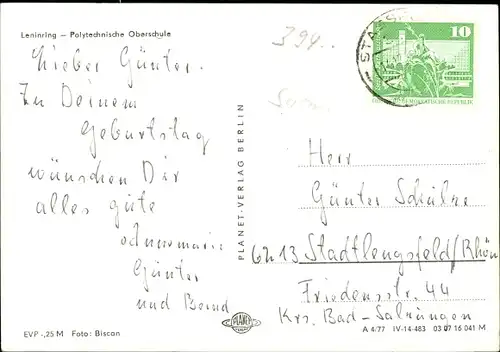 Leninring – Polytechnische Oberschule
394..
Lieber Günter.
Zu Deinem
Geburtstag
wünschen Dir
alles gute
Annemarie
Günter
und Bernd
PLANET-VERLAG BERLIN
10
DEUTSCHE DEMOKRATISCHE REPUBLIK
Herr
Günter Schulze
6213 Stadtlengsfeld/Rhön
Friedensstr. 44
Krs. Bad-Salzungen
EVP -,25 M Foto: Biscan
PLANET
A 4/77 IV-14-483 03 07 16 041 M